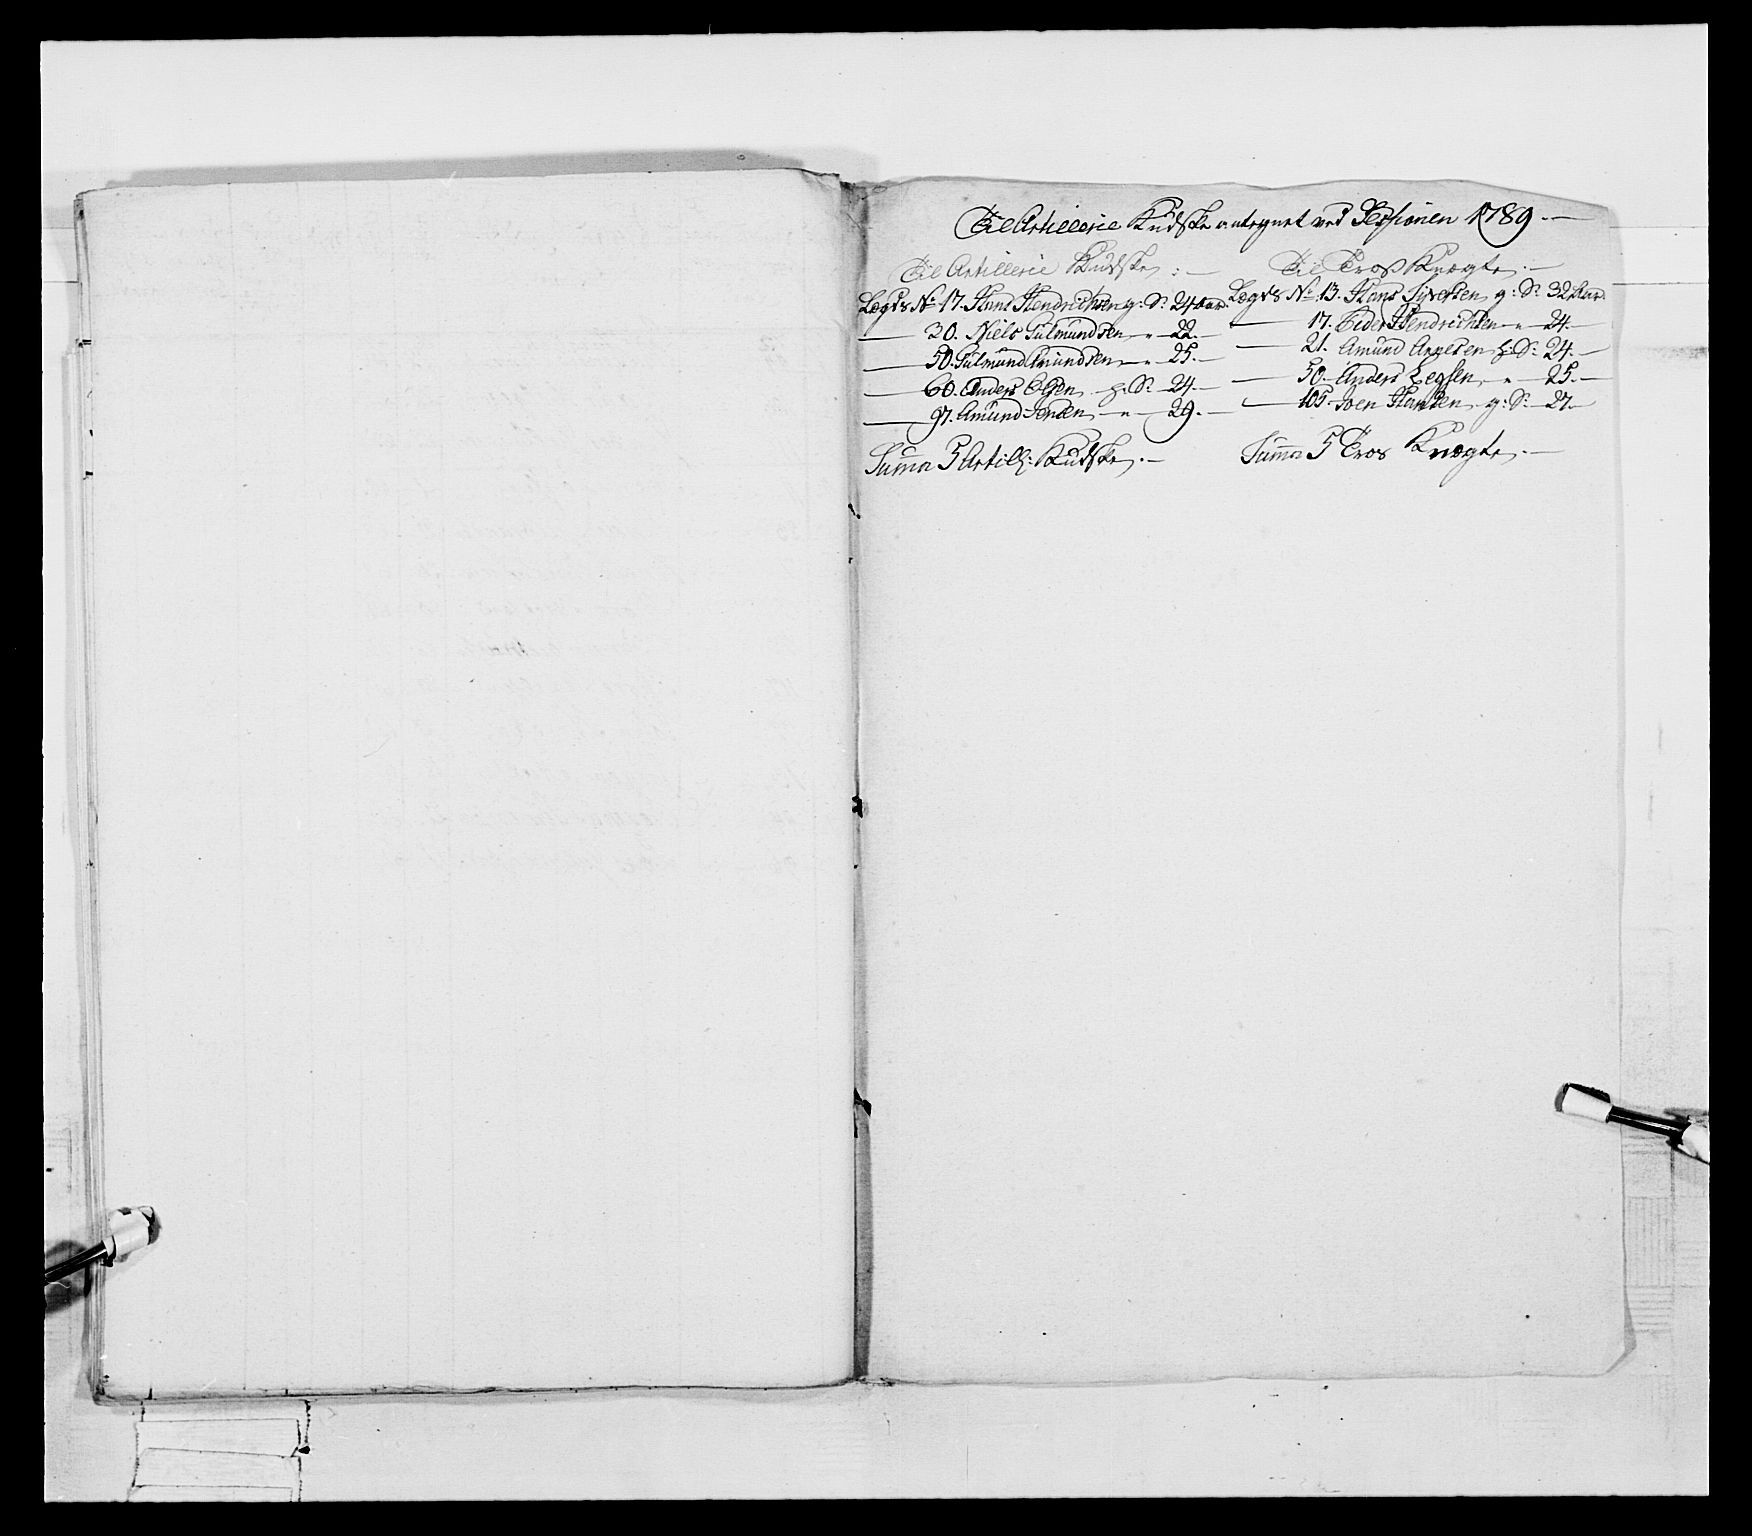 Til Artillerie Kudske antegnet ved Sessionen 1789.
Til Artillerie Kudske :
Lægds No 17. Hans Hendrichsen g: S: 24 Aar.
30. Niels Gulmundsen " 22.
50. Gulmund Amundsen " 25.
60. Anders Olsen h: S: 24.
97. Amund Jensen " 29.
Summa 5 Artill: Kudske.
Til Tros Knægte.
Lægds No 13. Hans Syversen g: S: 32 Aar.
17. Peder Hendrichsen " 24.
21. Amund Arnesen h: S: 24.
50. Anders " 25.
105. Joen Hansen g: S: 27.
Summa 5 Tros Knægte.